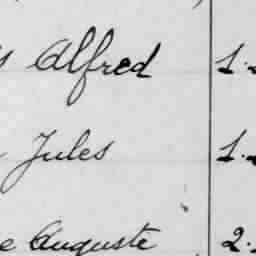 Alfred 1.
Jules 1.
Auguste 2.